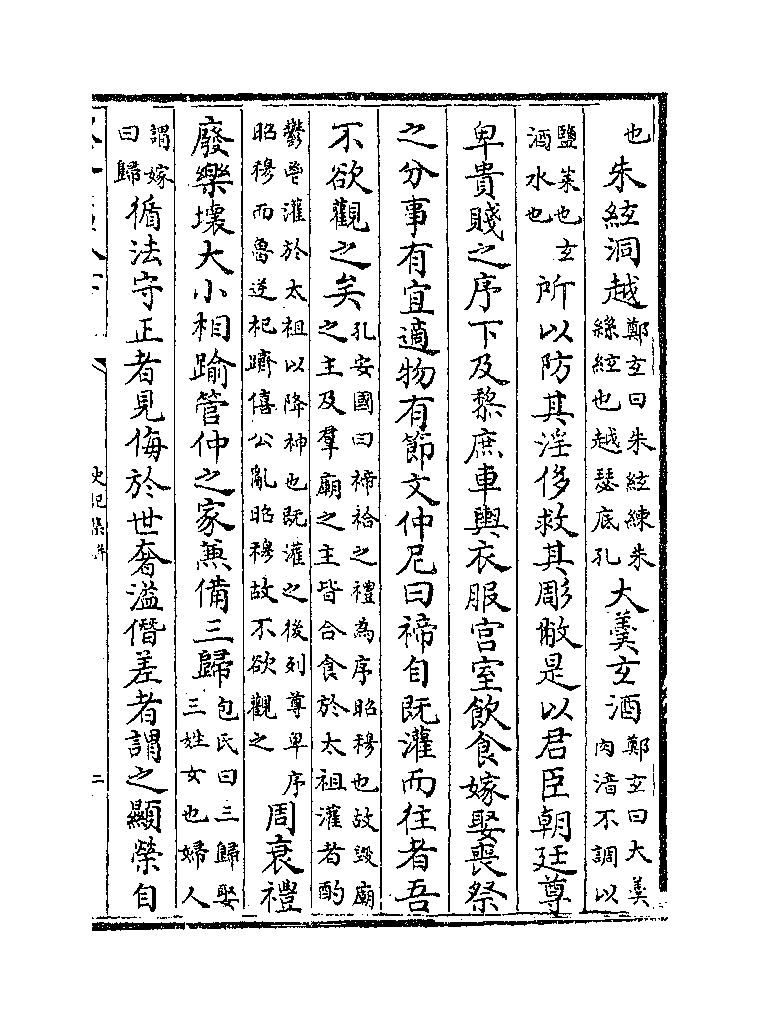 也朱絃洞越鄭玄曰朱絃練朱絲絃也越瑟底孔大羹玄酒鄭玄曰大羹肉湆不調以
鹽菜也玄酒水也所以防其淫侈救其彫敝是以君臣朝廷尊
卑貴賤之序下及黎庶車輿衣服宮室飲食嫁娶喪祭
之分事有宜適物有節文仲尼曰禘自既灌而往者吾
不欲觀之矣孔安國曰禘祫之禮為序昭穆也故毀廟之主及羣廟之主皆合食於太祖灌者酌
鬱鬯灌於太祖以降神也既灌之後列尊卑序昭穆而魯逆祀躋僖公亂昭穆故不欲觀之周衰禮
廢樂壞大小相踰管仲之家兼備三歸包氏曰三歸娶三姓女也婦人
謂嫁曰歸循法守正者見侮於世奢溢僭差者謂之顯榮自
史記集解
二